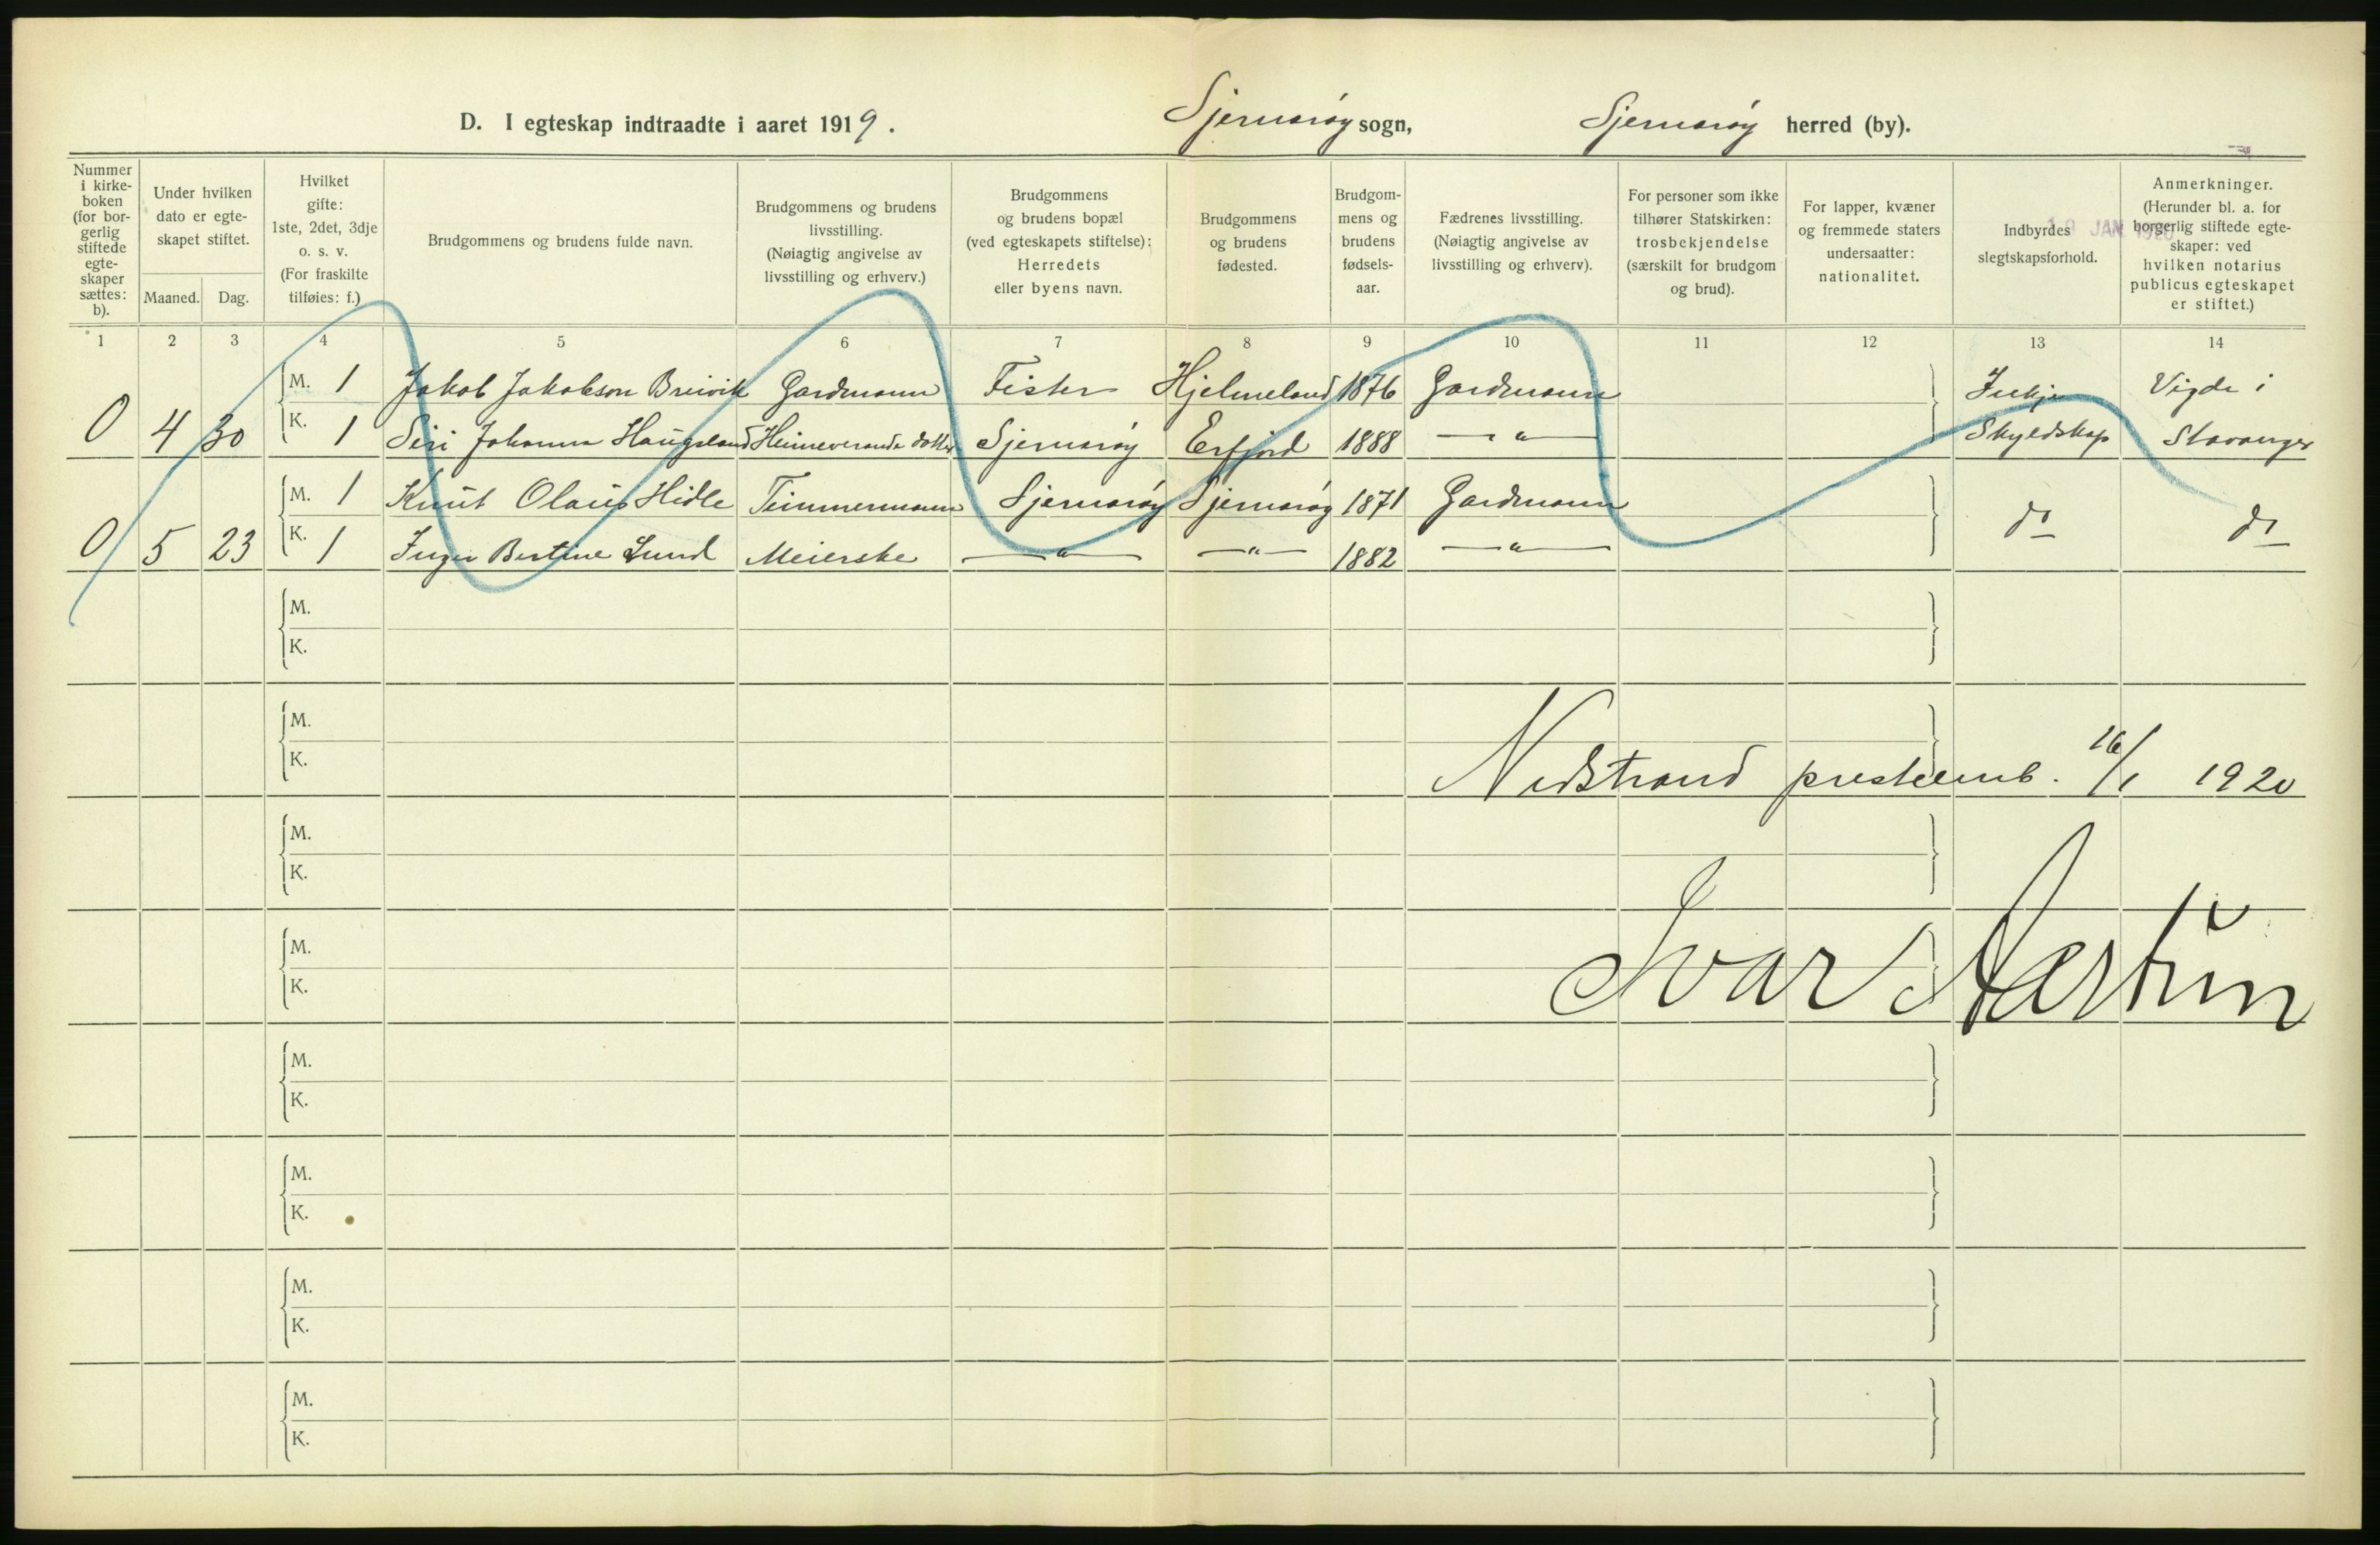 D. I egteskap indtraadte i aaret 1919. Sjernarøy sogn, Sjernarøy herred (by).
Nummer i kirke-boken (for bor-gerlig stiftede egte-skaper sættes: b).
Under hvilken dato er egte-skapet stiftet.
Maaned. Dag.
Hvilket gifte: 1ste, 2det, 3dje o. s. v. (For fraskilte tilføies: f.)
Brudgommens og brudens fulde navn.
Brudgommens og brudens livsstilling. (Nøiagtig angivelse av livsstilling og erhverv.)
Brudgommens og brudens bopæl (ved egteskapets stiftelse): Herredets eller byens navn.
Brudgommens og brudens fødested.
Brudgom-mens og brudens fødsels-aar.
Fædrenes livsstilling. (Nøiagtig angivelse av livsstilling og erhverv).
For personer som ikke tilhører Statskirken: trosbekjendelse (særskilt for brudgom og brud).
For lapper, kvæner og fremmede staters undersaatter: nationalitet.
Indbyrdes slegtskapsforhold.
Anmerkninger. (Herunder bl. a. for borgerlig stiftede egte-skaper: ved hvilken notarius publicus egteskapet er stiftet.)
JAN. 1920
1 2 3 4 5 6 7 8 9 10 11 12 13 14
M. 1 Jakob Jakobson Breivik Gardmann Fister Hjelmeland 1876 Gardmann Inkje Vigde i
0 4 30 K. 1 Siri Johanna Haugeland Heimeverande dotter Sjernarøy Erfjord 1888 —"— Skyldskap Stavanger
M. 1 Knut Olaus Hidle Timmermann Sjernarøy Sjernarøy 1871 Gardmann do do
0 5 23 K. 1 Inger Bertine Lund Meierske —"— —"— 1882 —"—
M.
K.
M.
K.
Nedstrand presteemb. 16/1 1920
M.
K.
M.
K.
Ivar Nærtun
M.
K.
M.
K.
M.
K.
M.
K.